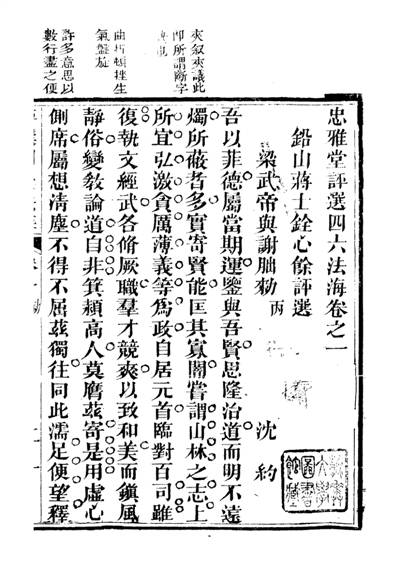 夾叙夾議此
即所謂斷字
曲折頓挫生
氣盤旋
許多意思以
數行盡之便
忠雅堂評選四六法海卷之一
鉛山蔣士銓心餘評選
梁武帝與謝朏勑 丙
沈約
吾以菲德屬當期運鑒與吾賢思隆治道而明不遠
燭所蔽者多實寄賢能匡其寡闇嘗謂山林之志上
所宜弘激貪厲薄義等為政自居元首臨對百司雖
復執文經武各脩厥職羣才競爽以致和美而鎮風
靜俗變教論道自非箕潁高人莫膺茲寄是用虛心
側席屬想清塵不得不屈茲獨往同此濡足便望釋